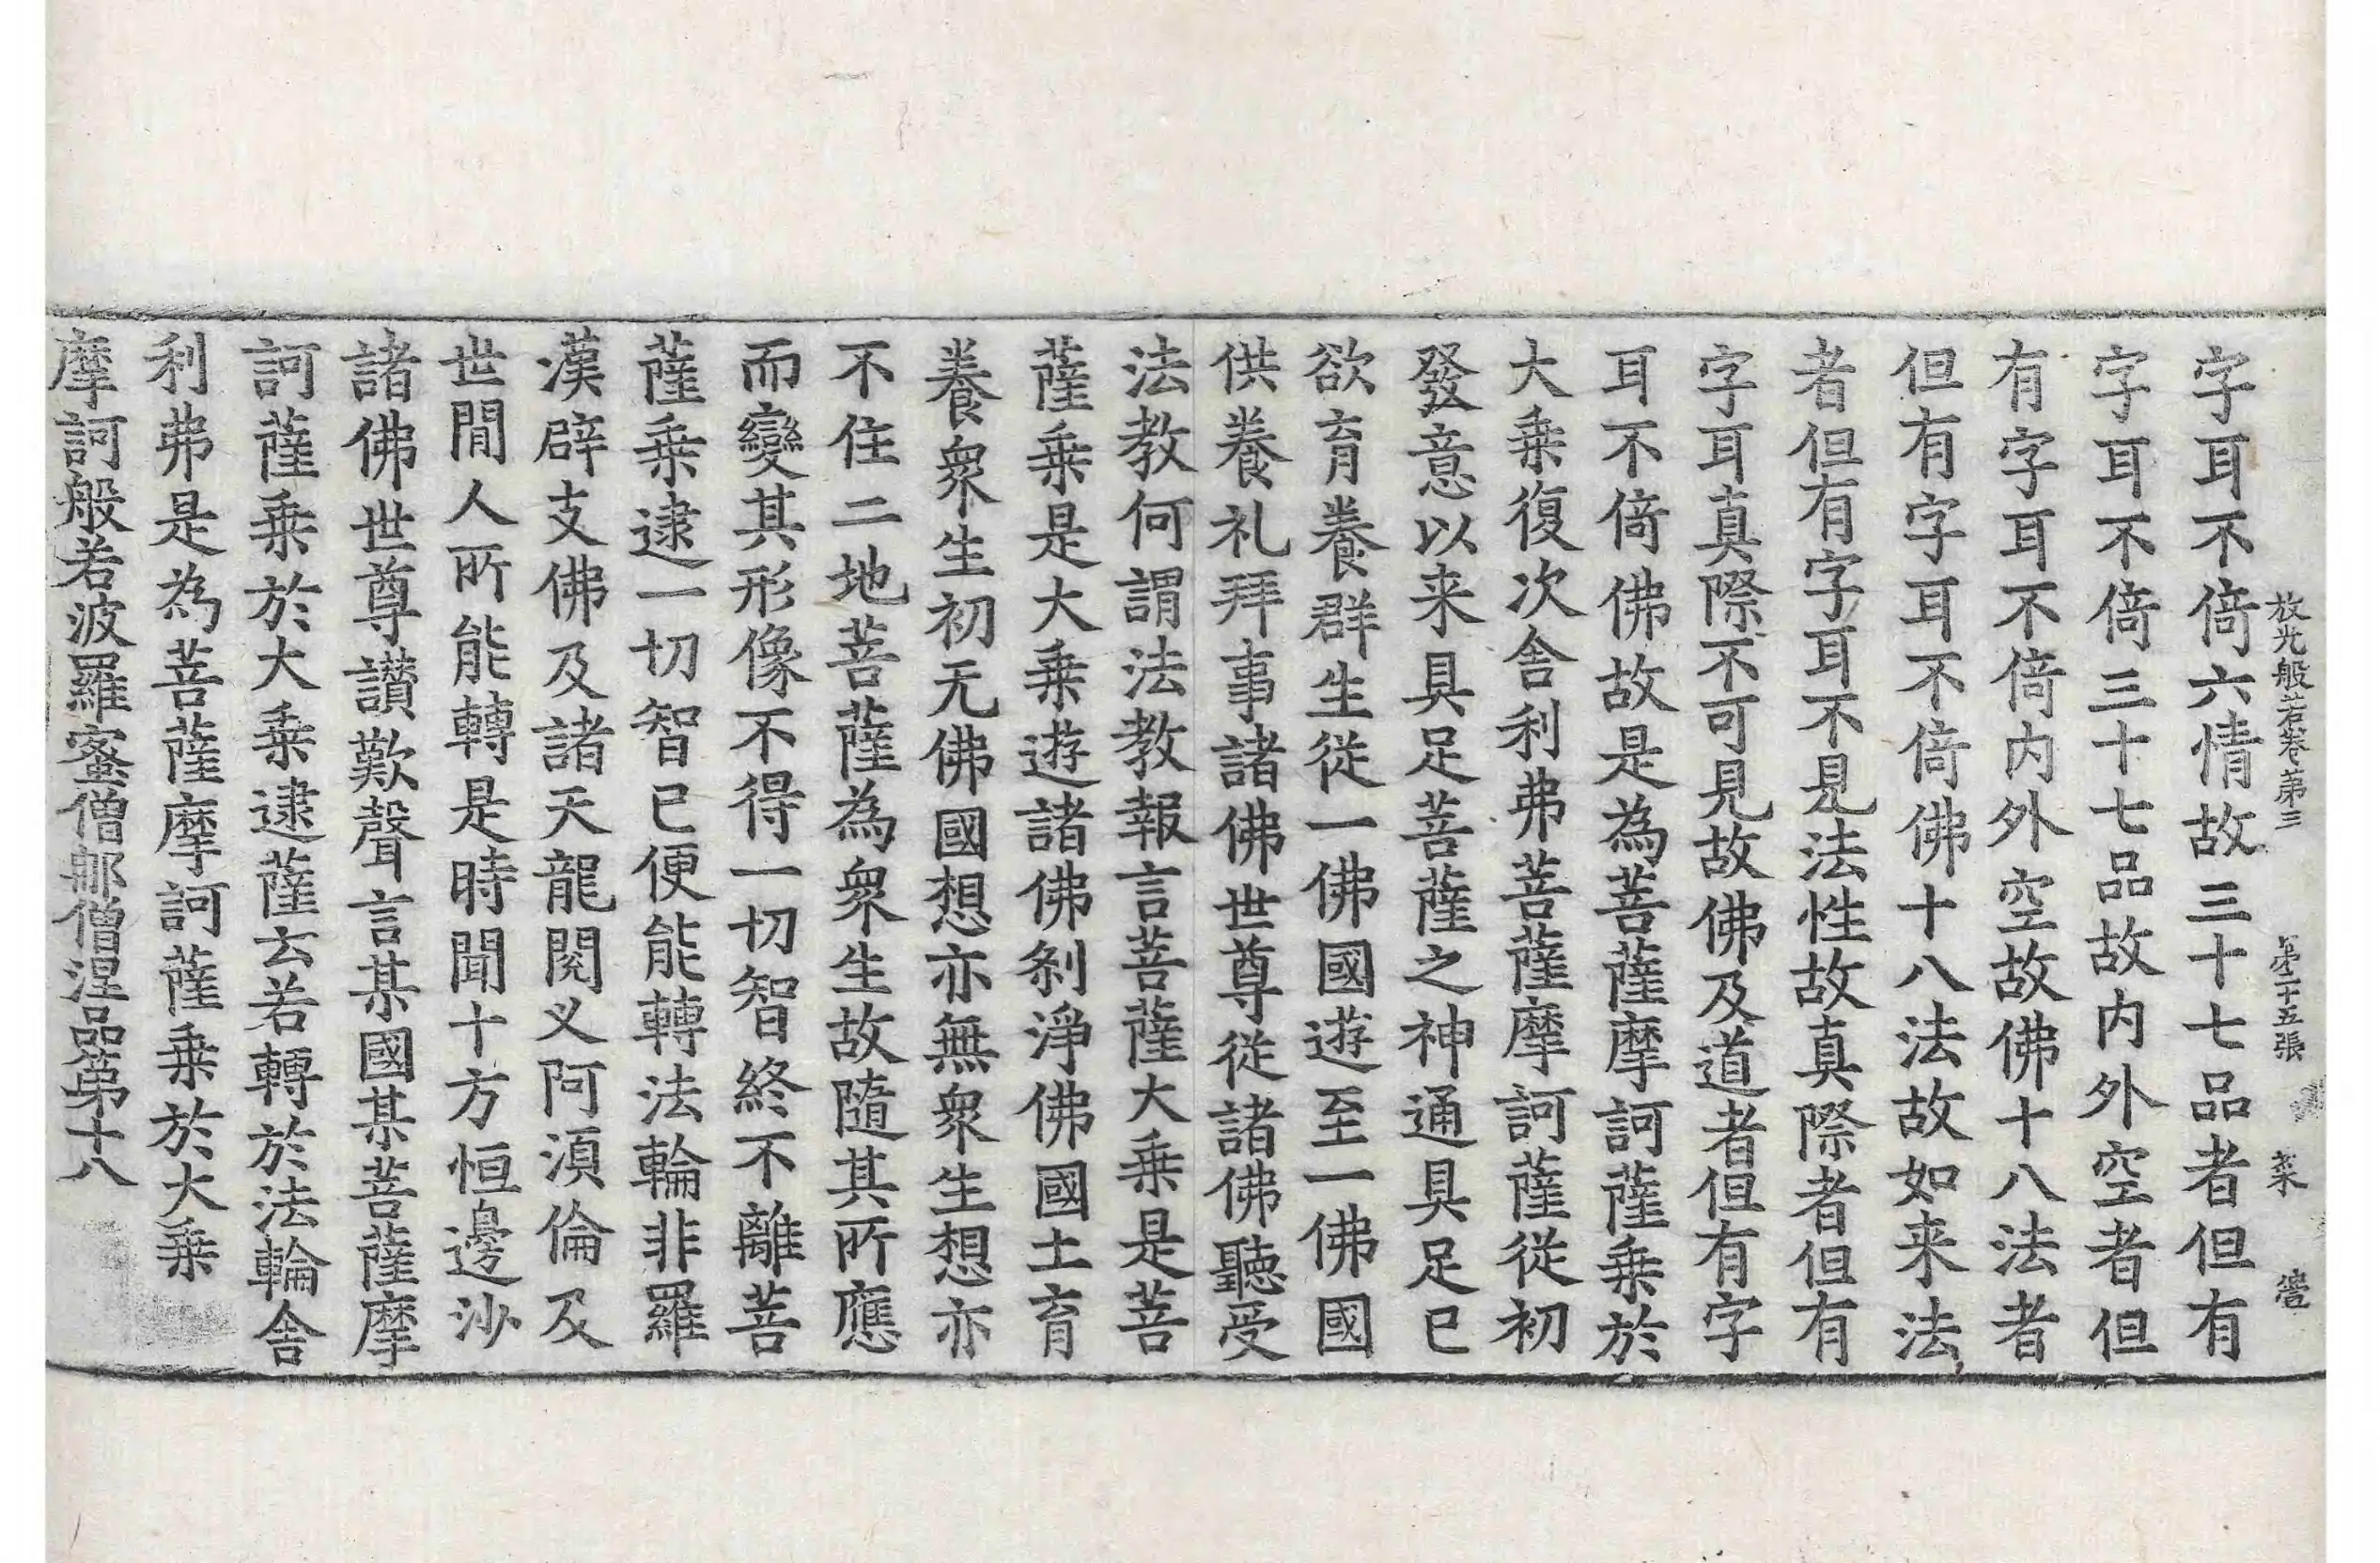 放光般若卷第三 第二十五張 菜
字耳不倚六情故三十七品者但有
字耳不倚三十七品故内外空者但
有字耳不倚内外空故佛十八法者
但有字耳不倚佛十八法故如来法
者但有字耳不見法性故真際者但有
字耳真際不可見故佛及道者但有字
耳不倚佛故是為菩薩摩訶薩乗於
大乗復次舍利弗菩薩摩訶薩從初
發意以来具足菩薩之神通具足已
欲育養群生從一佛國遊至一佛國
供養礼拜事諸佛世尊從諸佛聽受
法教何謂法教報言菩薩大乗是菩
薩乗是大乗遊諸佛刹淨佛國土育
養衆生初无佛國想亦無衆生想亦
不住二地菩薩為衆生故隨其所應
而變其形像不得一切智終不離菩
薩乗逮一切智已便能轉法輪非羅
漢辟支佛及諸天龍閱叉阿湏倫及
世閒人所能轉是時聞十方恒邊沙
諸佛世尊讃歎聲言某國某菩薩摩
訶薩乗於大乗逮薩云若轉於法輪舎
利弗是為菩薩摩訶薩乗於大乗
摩訶般若波羅蜜僧那僧涅品第十八